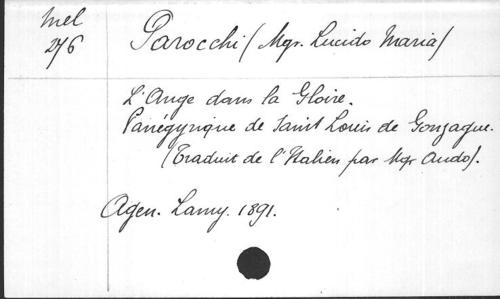 Mel
276
Parocchi (Mgr. Lucido Maria)
L'Ange dans la Gloire.
Panégyrique de Saint Louis de Gonzague.
(Traduit de l'Italien par Mgr Ando).
Agen. Lamy. 1891.